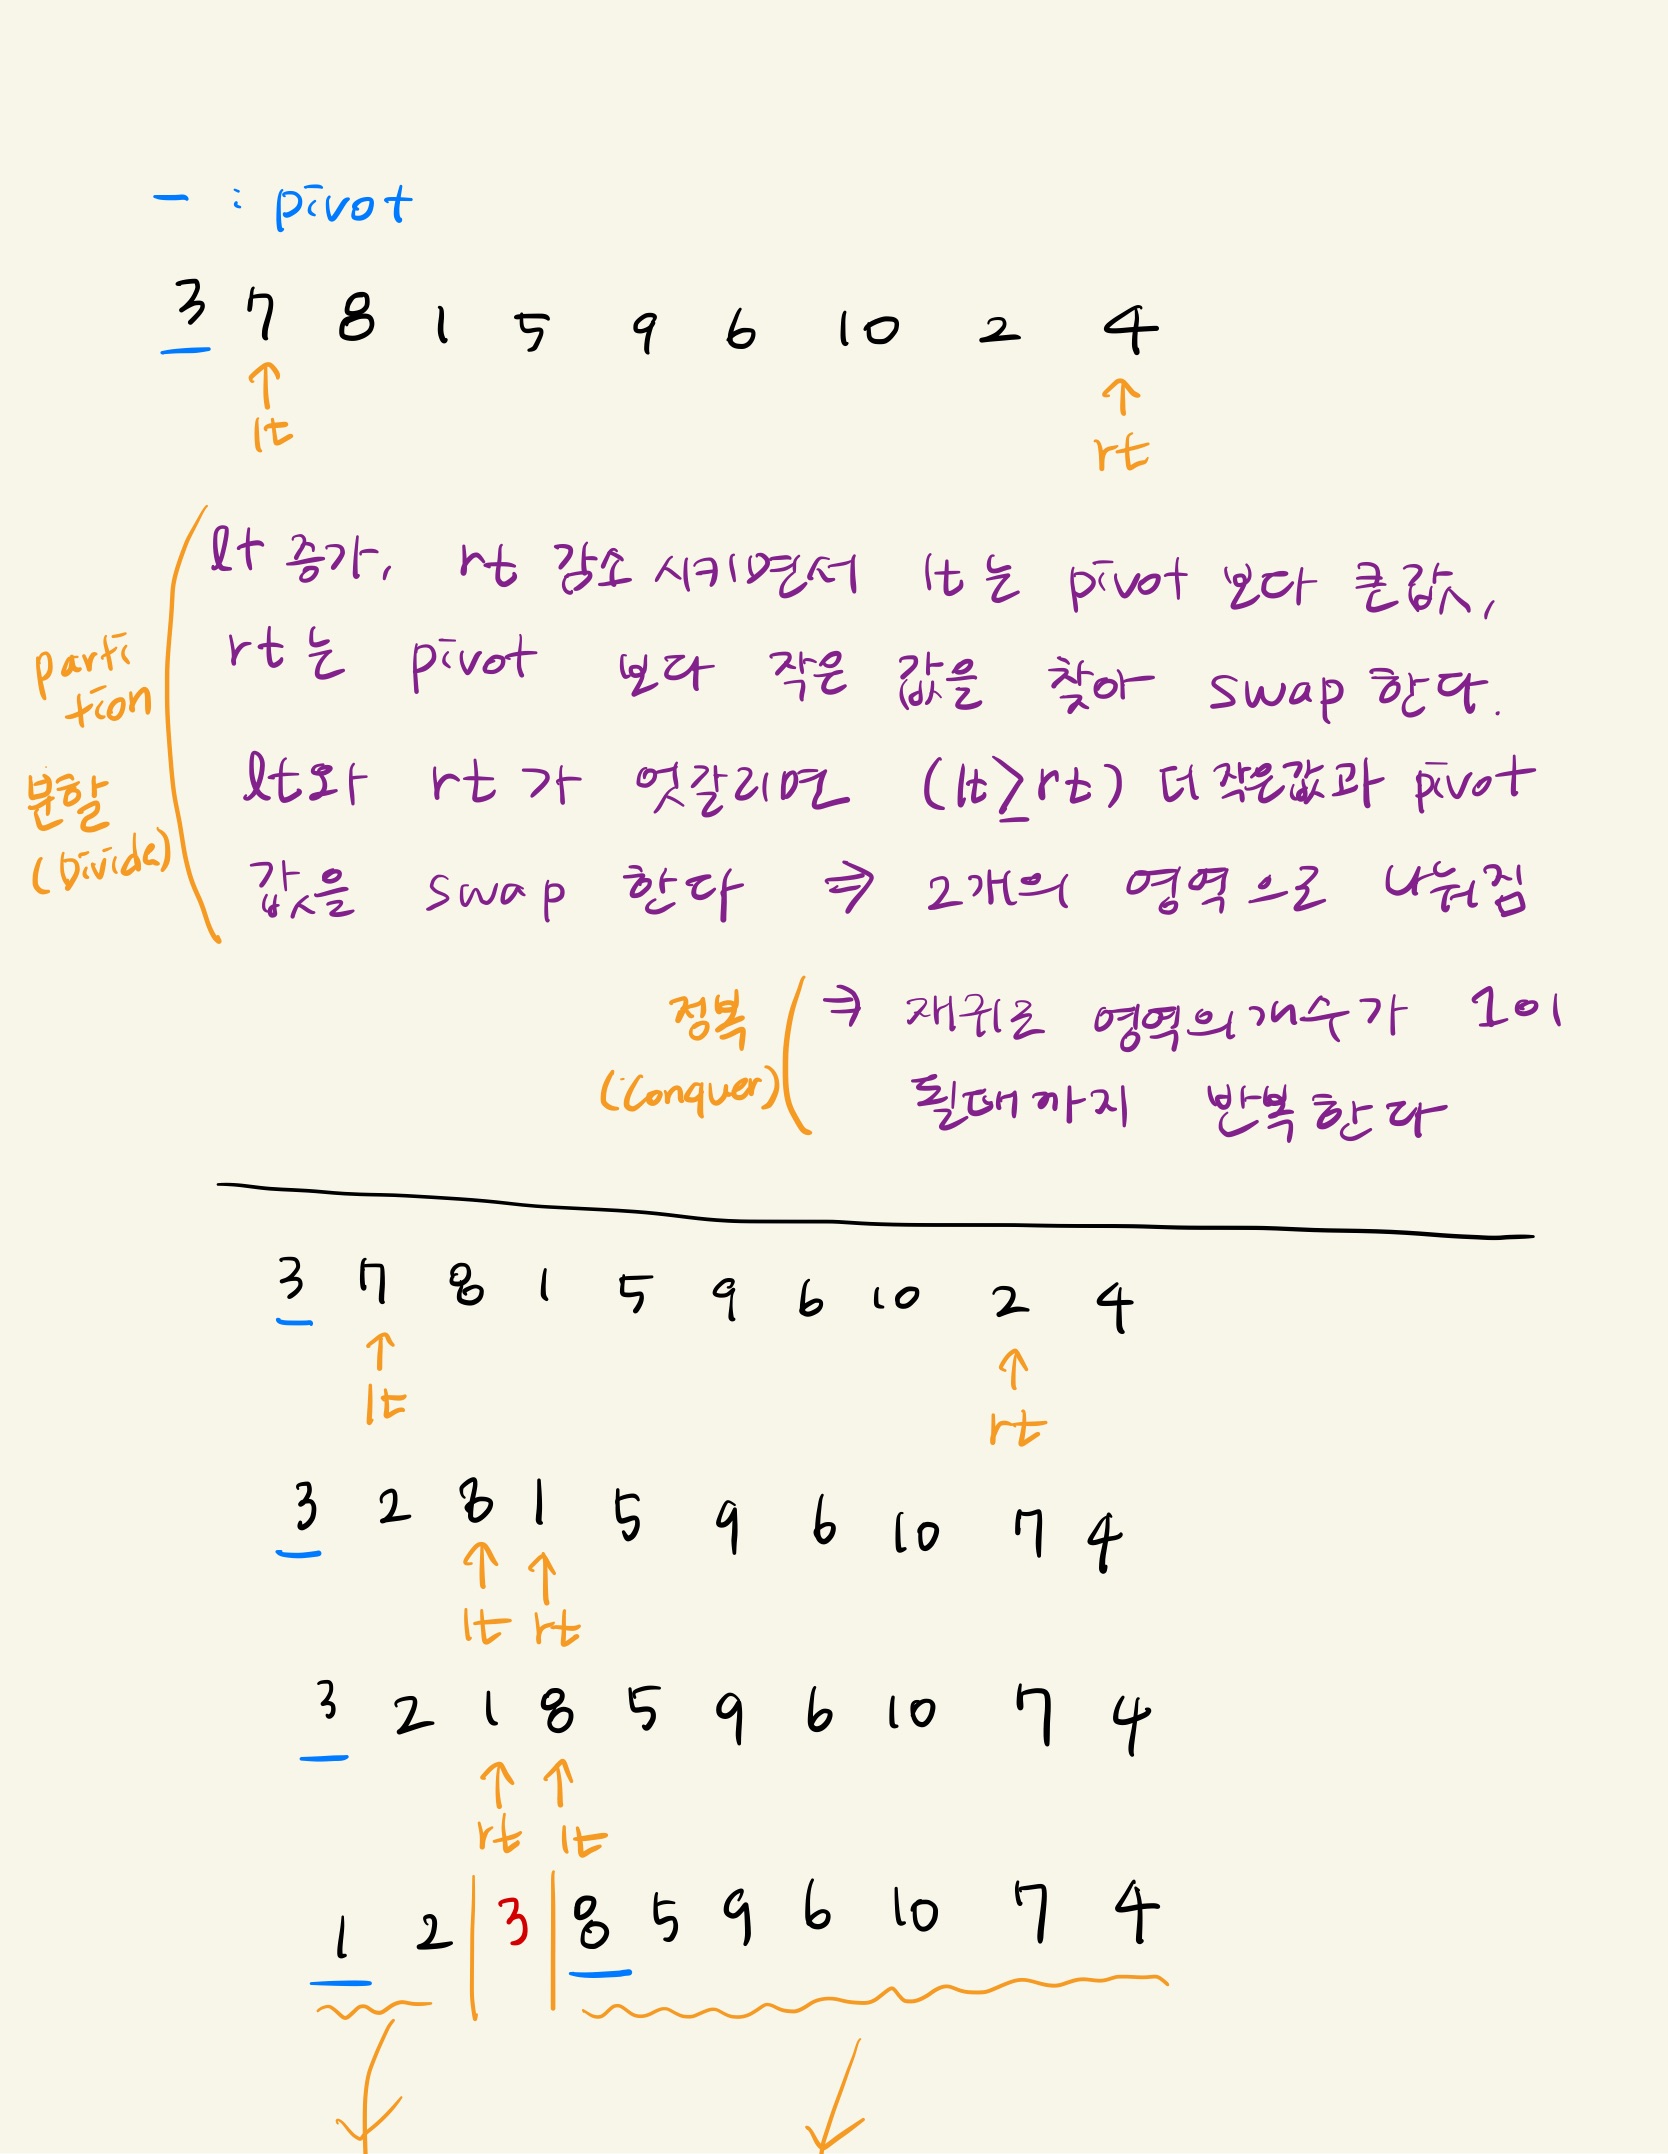 — : pivot
3 7 8 1 5 9 6 10 2 4
lt rt
lt 증가, rt 감소 시키면서 lt 는 pivot 보다 큰값,
rt 는 pivot 보다 작은 값을 찾아 swap 한다.
parti
tion
lt와 rt가 엇갈리면 (lt≥rt) 더 작은값과 pivot
분할
(Divide)
값을 swap 한다 ⇒ 2개의 영역으로 나눠짐
정복
(Conquer)
⇒ 재귀로 영역의 개수가 1이
될때까지 반복한다
3 7 8 1 5 9 6 10 2 4
lt rt
3 2 8 1 5 9 6 10 7 4
lt rt
3 2 1 8 5 9 6 10 7 4
rt lt
1 2 3 8 5 9 6 10 7 4